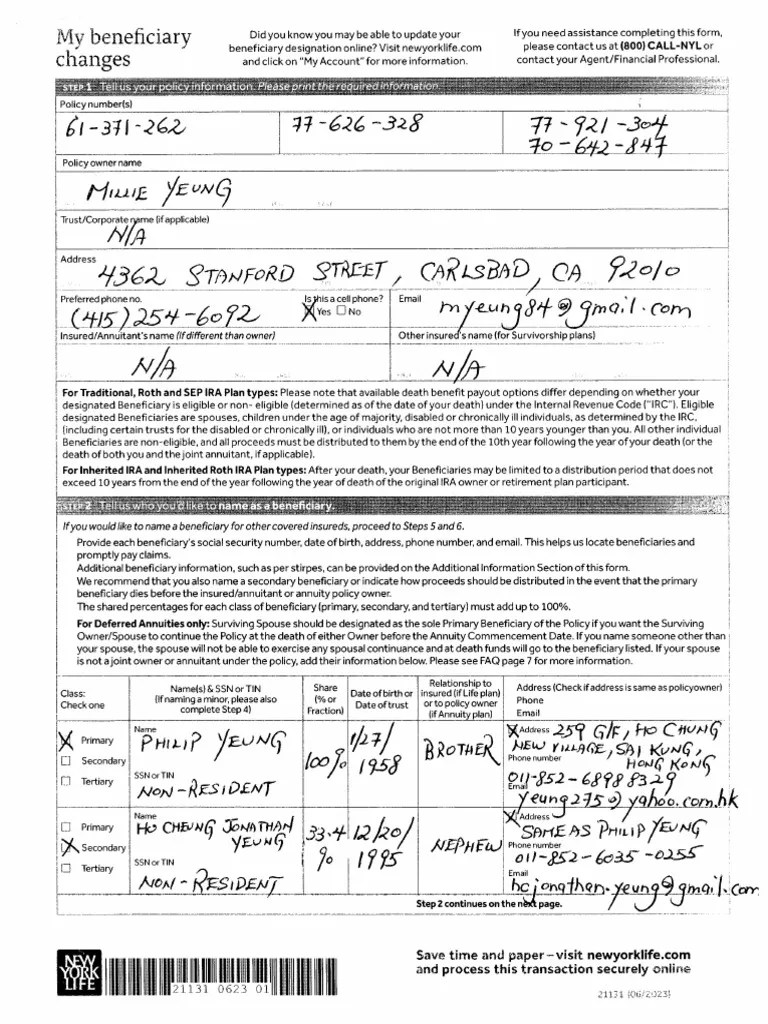 My beneficiary
changes
Did you know you may be able to update your
beneficiary designation online? Visit newyorklife.com
and click on "My Account" for more information.
If you need assistance completing this form,
please contact us at (800) CALL-NYL or
contact your Agent/Financial Professional.
STEP 1 Tell us your policy information. Please print the required information.
Policy number(s)
61-371-262
77-626-328
77-921-304
70-642-847
Policy owner name
MILLIE YEUNG
Trust/Corporate name (if applicable)
N/A
Address
4362 STANFORD STREET, CARLSBAD, CA 92010
Preferred phone no.
(415) 254-6092
Is this a cell phone?
X Yes ☐ No
Email
myeung84@gmail.com
Insured/Annuitant's name (If different than owner)
N/A
Other insured's name (for Survivorship plans)
N/A
For Traditional, Roth and SEP IRA Plan types: Please note that available death benefit payout options differ depending on whether your
designated Beneficiary is eligible or non- eligible (determined as of the date of your death) under the Internal Revenue Code ("IRC"). Eligible
designated Beneficiaries are spouses, children under the age of majority, disabled or chronically ill individuals, as determined by the IRC,
(including certain trusts for the disabled or chronically ill), or individuals who are not more than 10 years younger than you. All other individual
Beneficiaries are non-eligible, and all proceeds must be distributed to them by the end of the 10th year following the year of your death (or the
death of both you and the joint annuitant, if applicable).
For Inherited IRA and Inherited Roth IRA Plan types: After your death, your Beneficiaries may be limited to a distribution period that does not
exceed 10 years from the end of the year following the year of death of the original IRA owner or retirement plan participant.
STEP 2 Tell us who you'd like to name as a beneficiary.
If you would like to name a beneficiary for other covered insureds, proceed to Steps 5 and 6.
Provide each beneficiary's social security number, date of birth, address, phone number, and email. This helps us locate beneficiaries and
promptly pay claims.
Additional beneficiary information, such as per stirpes, can be provided on the Additional Information Section of this form.
We recommend that you also name a secondary beneficiary or indicate how proceeds should be distributed in the event that the primary
beneficiary dies before the insured/annuitant or annuity policy owner.
The shared percentages for each class of beneficiary (primary, secondary, and tertiary) must add up to 100%.
For Deferred Annuities only: Surviving Spouse should be designated as the sole Primary Beneficiary of the Policy if you want the Surviving
Owner/Spouse to continue the Policy at the death of either Owner before the Annuity Commencement Date. If you name someone other than
your spouse, the spouse will not be able to exercise any spousal continuance and at death funds will go to the beneficiary listed. If your spouse
is not a joint owner or annuitant under the policy, add their information below. Please see FAQ page 7 for more information.
Class:
Check one
Name(s) & SSN or TIN
(If naming a minor, please also
complete Step 4)
Share
(% or
Fraction)
Date of birth or
Date of trust
Relationship to
insured (if Life plan)
or to policy owner
(if Annuity plan)
Address (Check if address is same as policyowner)
Phone
Email
X Primary
☐ Secondary
☐ Tertiary
Name
PHILIP YEUNG
SSN or TIN
NON-RESIDENT
100%
1/27/
1958
BROTHER
X Address 259 G/F, HO CHUNG
NEW VILLAGE, SAI KUNG,
HONG KONG
Phone number
011-852-6898 8329
Email
yeung275@yahoo.com.hk
☐ Primary
X Secondary
☐ Tertiary
Name
HO CHEUNG JONATHAN
YEUNG
SSN or TIN
NON-RESIDENT
33.4
%
12/20/
1995
NEPHEW
X Address
SAME AS PHILIP YEUNG
Phone number
011-852-6035-0255
Email
hcjonathan.yeung@gmail.com
Step 2 continues on the next page.
NEW
YORK
LIFE
21131 0623 01
Save time and paper – visit newyorklife.com
and process this transaction securely online
21131 (06/2023)